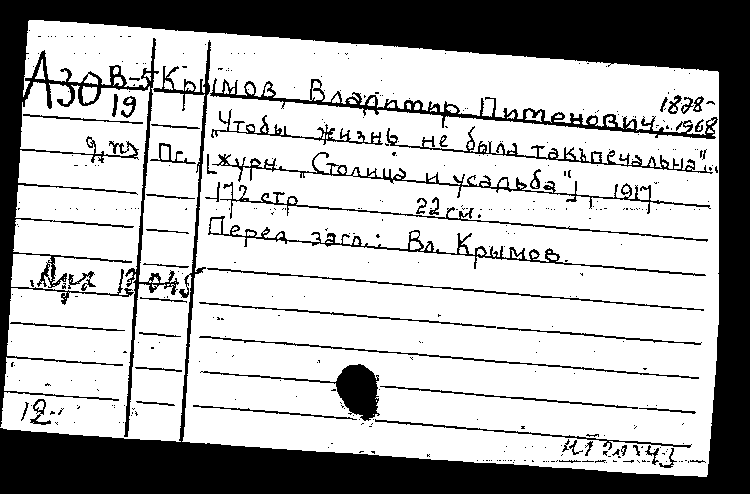 А30 В-5 Крымов, Владимир Пименович, 1878-
19 1968
„Чтобы жизнь не была такъпечальна"...
Пг., [журн. „Столица и усадьба"], 1917.
172 стр 22 см.
Перед загл.: Вл. Крымов.
12 045
12